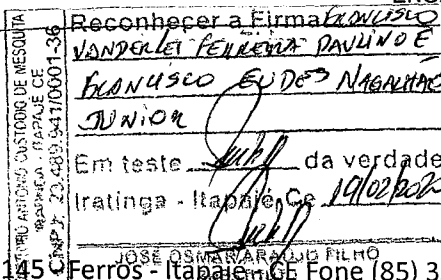 Reconheçer a Firma FRANCISCO
VANDERLEI FERREIRA PAULINO E
FRANCISCO EUDES MAGALHÃES
JUNIOR
Em teste da verdade
Iratinga - Itapajé, Ce 19/02/202
JOSÉ OSMAR ARAUJO FILHO
145 Ferros - Itapajé - CE Fone (85) 3
ANTONIO CUSTODIO DE MESQUITA
IRATINGA - ITAPAJÉ CE
CNPJ: 23.489.941/0001-36